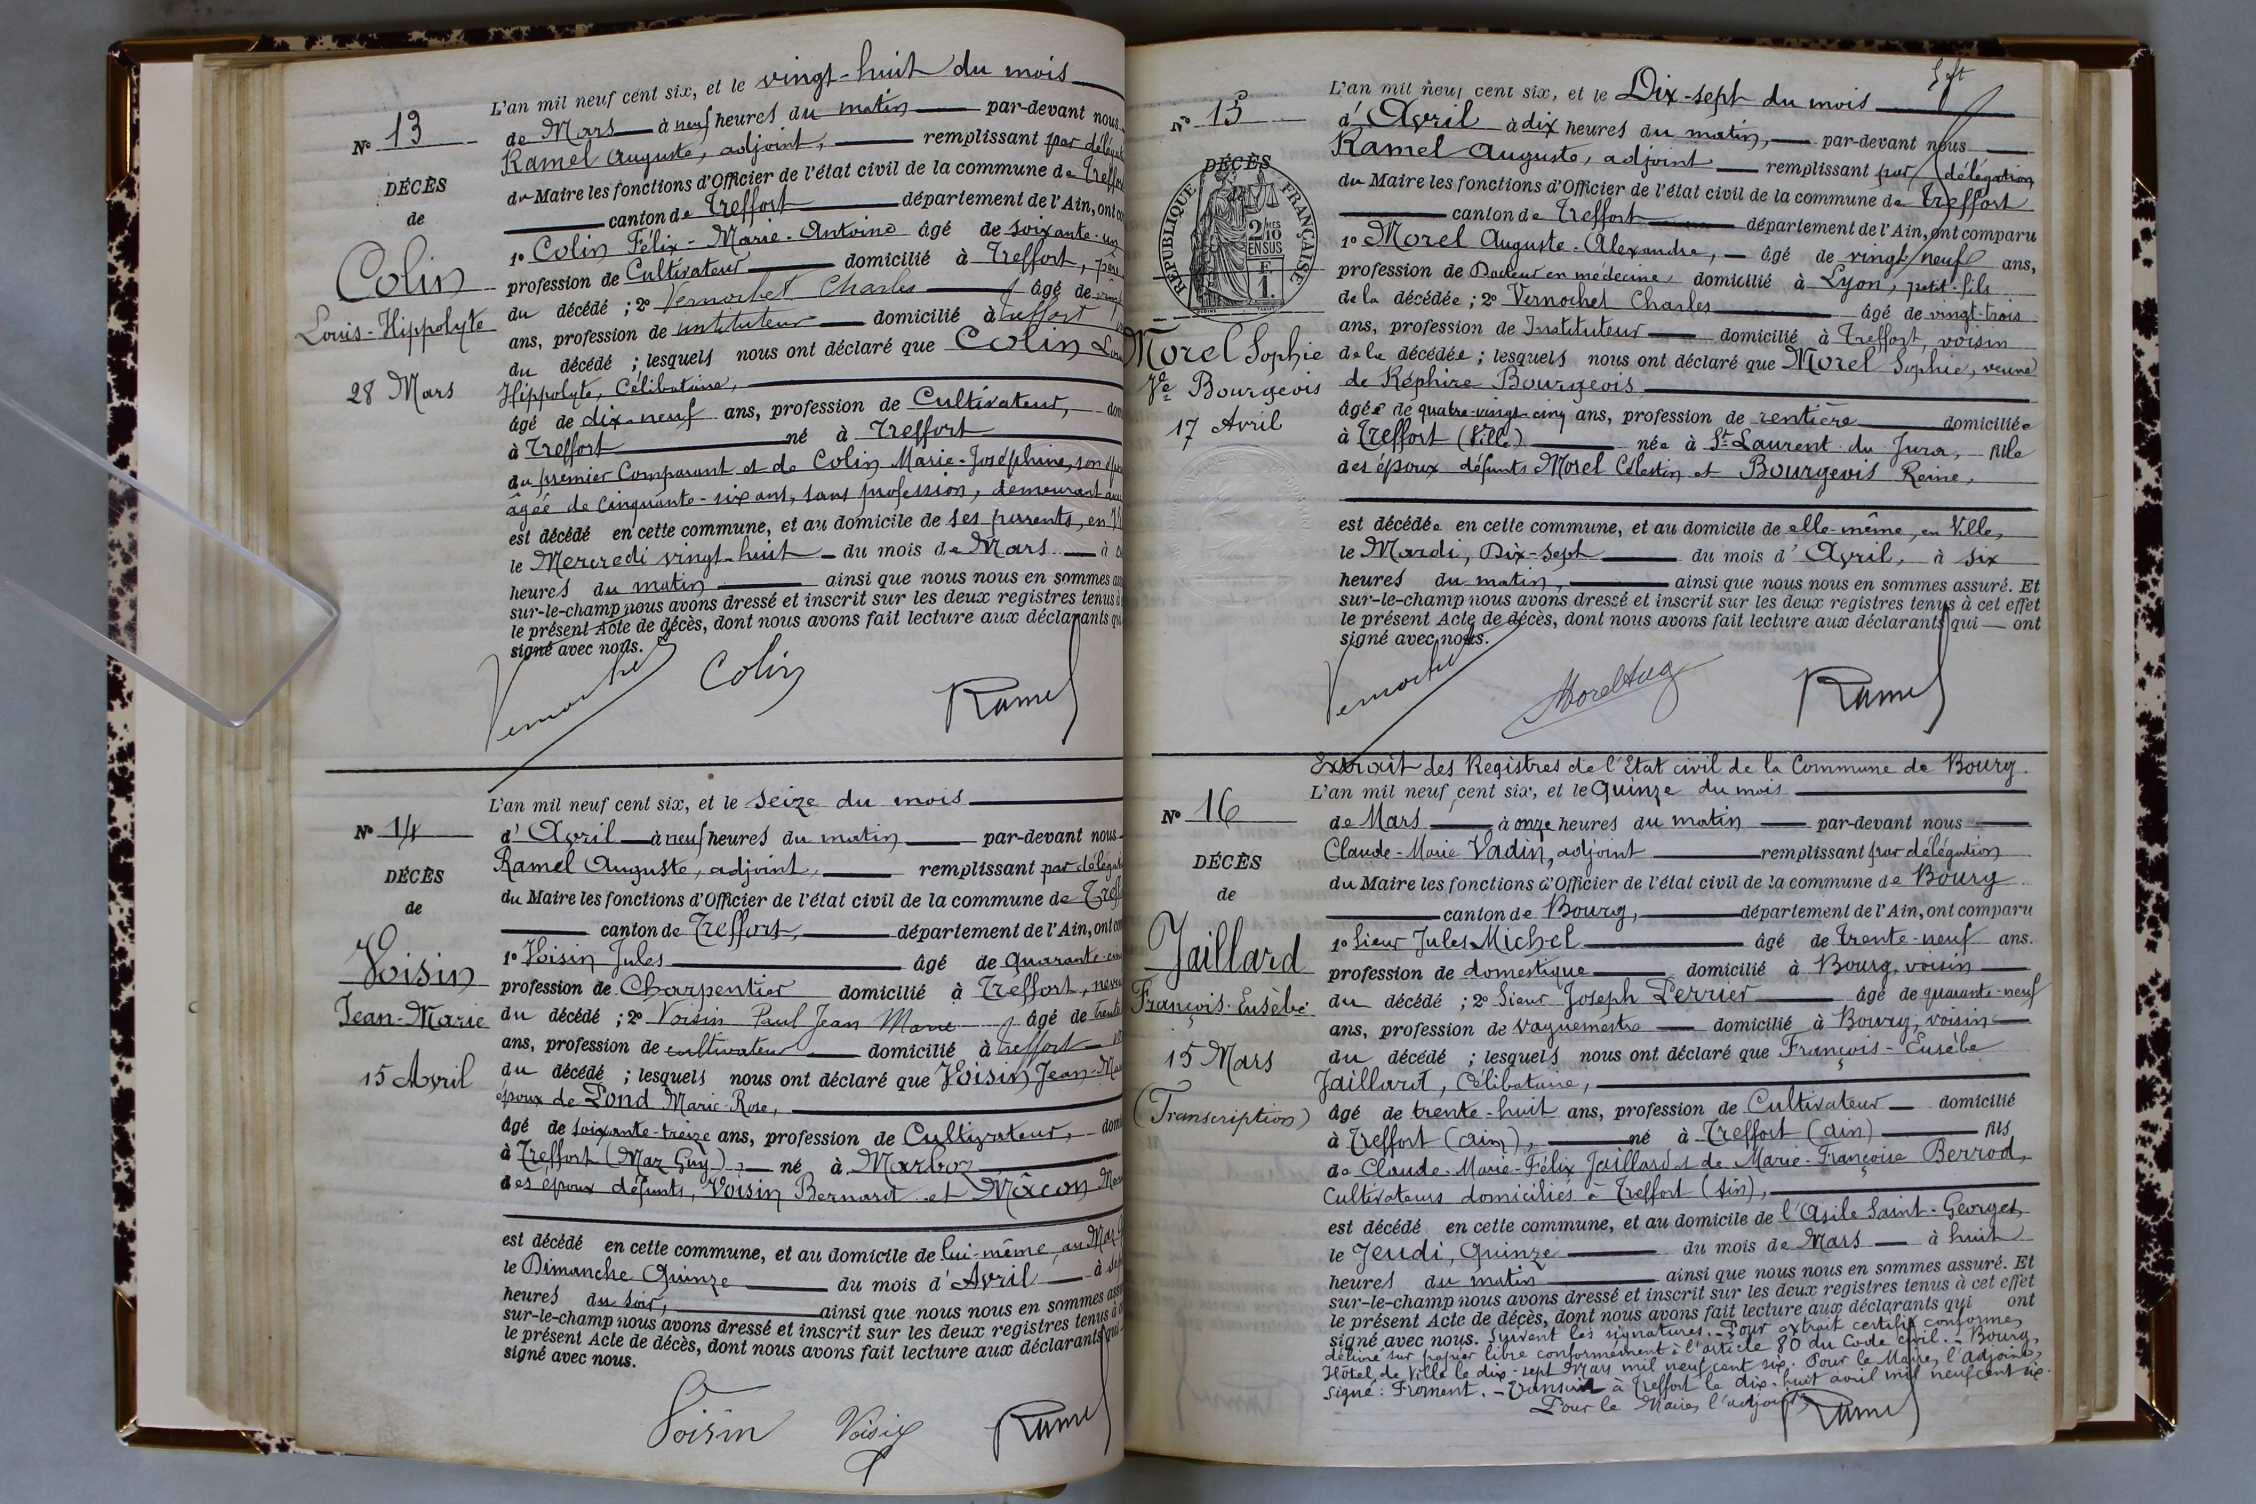 L'an mil neuf cent six, et le vingt-huit du mois
Nº 13
de Mars à neuf heures du matin par-devant nous
Ramel Auguste, adjoint, remplissant par
DÉCÈS
du Maire les fonctions d'Officier de l'état civil de la commune de
de
canton de Treffort département de l'Ain,
Colin
1º Colin Félix-Marie-Antoine âgé de soixante-un
profession de Cultivateur domicilié à Treffort,
Louis-Hippolyte
du décédé ; 2º Vernochet Charles âgé de
ans, profession de instituteur domicilié à Treffort
du décédé ; lesquels nous ont déclaré que Colin
28 Mars
Hippolyte, Célibataire,
âgé de dix-neuf ans, profession de Cultivateur,
à Treffort né à Treffort
du premier Comparant et de Colin Marie-Joséphine, son
âgée de cinquante-six ans, sans profession, demeurant
est décédé en cette commune, et au domicile de ses parents, en
le Mercredi vingt-huit du mois de Mars à
heures du matin ainsi que nous nous en sommes
sur-le-champ nous avons dressé et inscrit sur les deux registres tenus
le présent Acte de décès, dont nous avons fait lecture aux déclarants
signé avec nous.
Vernochet Colin Ramel
L'an mil neuf cent six, et le seize du mois
Nº 14
d'Avril à neuf heures du matin par-devant nous
Ramel Auguste, adjoint, remplissant par
DÉCÈS
du Maire les fonctions d'Officier de l'état civil de la commune de
de
canton de Treffort, département de l'Ain,
Voisin
1º Voisin Jules âgé de quarante
profession de Charpentier domicilié à Treffort,
Jean-Marie
du décédé ; 2º Voisin Paul Jean Marie âgé de
ans, profession de cultivateur domicilié à Treffort
15 Avril
du décédé ; lesquels nous ont déclaré que Voisin Jean
époux de Pond Marie-Rose,
âgé de soixante-treize ans, profession de Cultivateur,
à Treffort (Maz Guy), né à Marboz
des époux défunts, Voisin Bernard et Mâcon
est décédé en cette commune, et au domicile de lui-même, au Maz
le Dimanche Quinze du mois d'Avril à
heures du soir, ainsi que nous nous en sommes
sur-le-champ nous avons dressé et inscrit sur les deux registres tenus
le présent Acte de décès, dont nous avons fait lecture aux déclarants
signé avec nous.
Voisin Voisin Ramel
L'an mil neuf cent six, et le Dix-sept du mois
Nº 15
d'Avril à dix heures du matin, par-devant nous
Ramel Auguste, adjoint remplissant par délégation
DÉCÈS
RÉPUBLIQUE FRANÇAISE
2/10 EN SUS
du Maire les fonctions d'Officier de l'état civil de la commune de Treffort
canton de Treffort département de l'Ain, ont comparu
1º Morel Auguste-Alexandre, âgé de vingt-neuf ans,
profession de Docteur en médecine domicilié à Lyon, petit-fils
de la décédée ; 2º Vernochet Charles âgé de vingt-trois
ans, profession de Instituteur domicilié à Treffort, voisin
Morel Sophie
de la décédée ; lesquels nous ont déclaré que Morel Sophie, veuve
Vve Bourgeois
de Réphire Bourgeois,
17 Avril
âgée de quatre-vingt-cinq ans, profession de rentière domiciliée
à Treffort (Ville) née à St Laurent du Jura, fille
des époux défunts Morel Célestin et Bourgeois Reine,
est décédée en cette commune, et au domicile de elle-même, en Ville,
le Mardi, Dix-sept du mois d'Avril, à six
heures du matin, ainsi que nous nous en sommes assuré. Et
sur-le-champ nous avons dressé et inscrit sur les deux registres tenus à cet effet
le présent Acte de décès, dont nous avons fait lecture aux déclarants qui ont
signé avec nous.
Vernochet Morel Aug Ramel
Extrait des Registres de l'Etat civil de la Commune de Bourg.
L'an mil neuf cent six, et le Quinze du mois
Nº 16
de Mars à onze heures du matin par-devant nous
Claude-Marie Vadin, adjoint remplissant par délégation
DÉCÈS
du Maire les fonctions d'Officier de l'état civil de la commune de Bourg
de
canton de Bourg, département de l'Ain, ont comparu
Jaillard
1º Sieur Jules Michel âgé de trente-neuf ans.
profession de domestique domicilié à Bourg, voisin
François-Eusèbe
du décédé ; 2º Sieur Joseph Perrier âgé de quarante-neuf
ans, profession de vaguemestre domicilié à Bourg, voisin
15 Mars
du décédé ; lesquels nous ont déclaré que François-Eusèbe
Jaillard, Célibataire,
(Transcription)
âgé de trente-huit ans, profession de Cultivateur domicilié
à Treffort (ain), né à Treffort (ain) fils
de Claude-Marie-Félix Jaillard et de Marie-Françoise Berrod,
Cultivateurs domiciliés à Treffort (ain),
est décédé en cette commune, et au domicile de l'Asile Saint-Georges,
le Jeudi, Quinze du mois de Mars à huit
heures du matin ainsi que nous nous en sommes assuré. Et
sur-le-champ nous avons dressé et inscrit sur les deux registres tenus à cet effet
le présent Acte de décès, dont nous avons fait lecture aux déclarants qui ont
signé avec nous. Suivent les signatures. - Pour extrait certifié conforme,
délivré sur papier libre conformément à l'article 80 du Code civil. - Bourg,
Hôtel de Ville le dix-sept Mars mil neuf cent six. Pour le Maire, l'adjoint,
signé : Froment. - Transcrit à Treffort le dix-huit avril mil neuf cent six.
Pour le Maire, l'adjoint Ramel